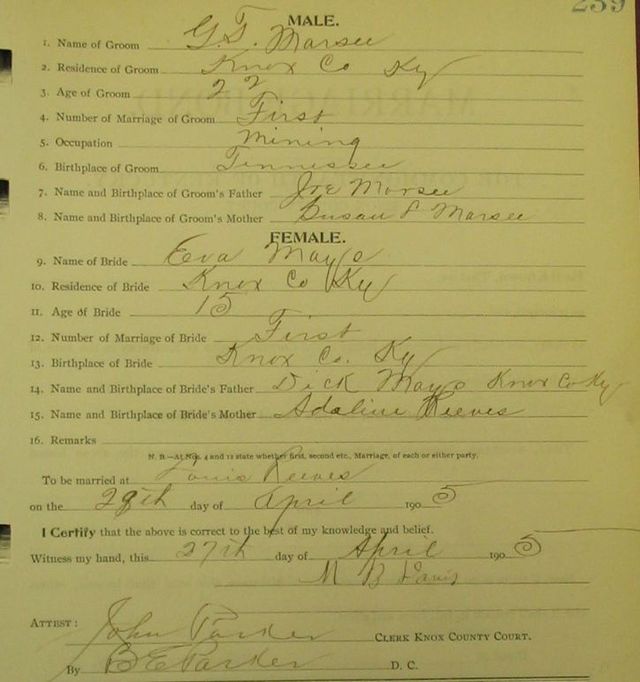 239
MALE.
1. Name of Groom G.T. Marsee
2. Residence of Groom Knox Co Ky
3. Age of Groom 22
4. Number of Marriage of Groom First
5. Occupation Mining
6. Birthplace of Groom Tennessee
7. Name and Birthplace of Groom's Father Joe Marsee
8. Name and Birthplace of Groom's Mother Susan Marsee
FEMALE.
9. Name of Bride Eva Mays
10. Residence of Bride Knox Co Ky
11. Age of Bride 15
12. Number of Marriage of Bride First
13. Birthplace of Bride Knox Co. Ky
14. Name and Birthplace of Bride's Father Dick Mays Knox Co Ky
15. Name and Birthplace of Bride's Mother Adaline Reeves
16. Remarks
N. B.—At Nos. 4 and 12 state whether first, second etc., Marriage, of each or either party.
To be married at Louis Reeves
on the 28th day of April 1905
I Certify that the above is correct to the best of my knowledge and belief.
Witness my hand, this 27th day of April 1905
M B Davis
ATTEST: John Parker CLERK KNOX COUNTY COURT.
By B E Parker D. C.